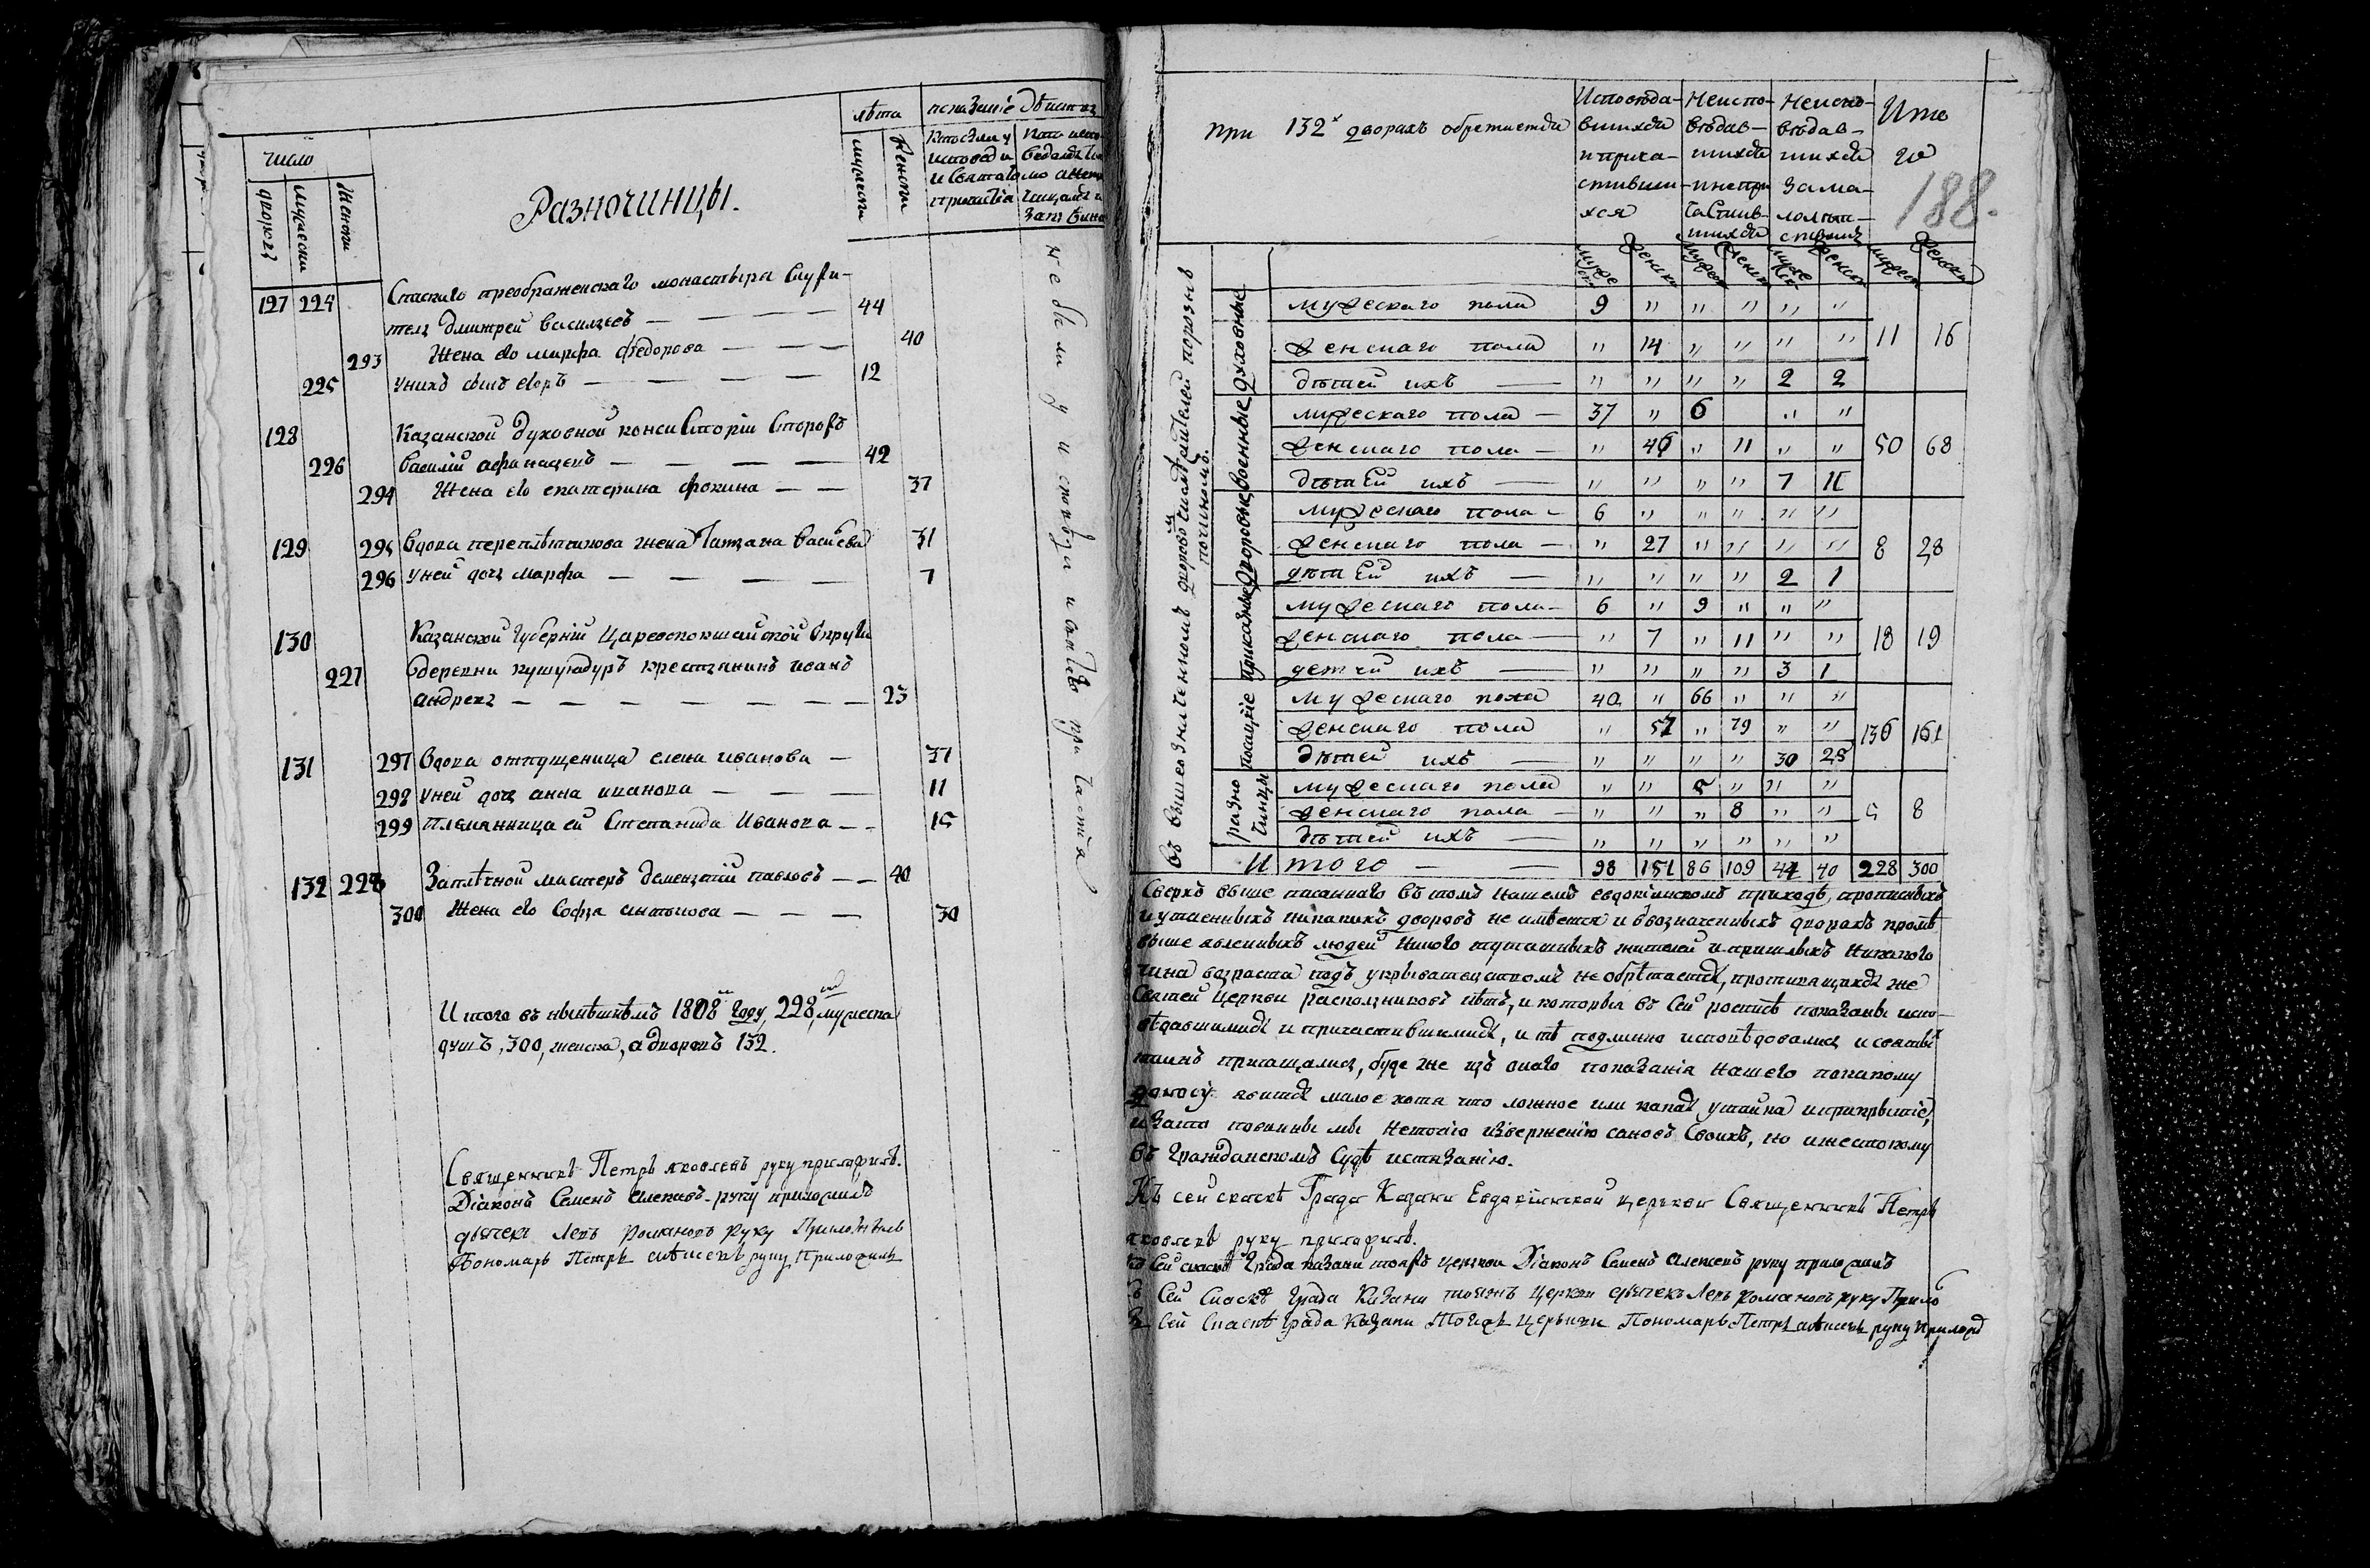 число
дворовъ
мужески
женски
Разночинцы.
лѣта
мужески
женски
показаніе дѣйства
Кто былъ у
исповеди
и святаго
причастія
не были у исповѣди и святаго причастія
127 224 Спаскаго преображенскаго монастыря Служи-
тель Дмитрей Васильевъ — — — — 44
293 Жена его марфа федорова — — — 40
225 у нихъ сынъ егоръ — — — — 12
128 Казанской духовной консисторіи Сторожъ
226 Василій афанасьевъ — — — — 42
294 Жена его екатерина фокина — — 37
129 295 Вдова переплетчикова жена Татьяна Васильева 31
296 у ней дочь марфа — — — — 7
130 Казанской губерніи Царевококшайской округи
227 деревни кушуядуръ крестьянинъ иванъ
андреевъ — — — — — — — 23
131 297 Вдова отпущеница елена иванова — 37
298 у ней дочь анна иванова — — — 11
299 племянница ей Степанида Иванова — - 15
132 228 Заплечной мастеръ дементій павловъ — — 40
300 Жена его Софья антонова — — — 30
Итого въ нынѣшнемъ 1808 году, 228, мужеска
душъ, 300, женска, а дворовъ 132.
Священникъ Петръ яковлевъ руку приложилъ.
Діаконъ Семенъ алексеевъ руку приложилъ
дьячекъ Левъ Романовъ руку Приложилъ
Пономарь Петръ алексеевъ руку Приложилъ
при 132х дворахъ обретается
Исповеда-
вшихся
и прича-
стивши-
хся
Неиспо-
ведав-
шихся
и непри
частив-
шихся
Неиспо-
ведав-
шихся
за ма-
лолет-
ствомъ
Ито
го
188.
въ вышеозначенномъ дворовъ числѣ жителей порознь
по чиномъ.
Духовные
мужескаго пола 9 " " " " "
женскаго пола " 14 " " " " 11 16
дѣтей ихъ — " " " " 2 2
Военные
мужескаго пола — 37 " 6 " "
женскаго пола — " 46 " 11 " " 50 68
дѣтей ихъ — " " " " 7 11
Дворовые
мужескаго пола - 6 " " " " "
женскаго пола — " 27 " " " " 8 28
дѣтей ихъ — " " " " 2 1
Приказные
мужескаго пола - 6 " 9 " " "
женскаго пола — " 7 " 11 " " 18 19
детей ихъ — " " " " 3 1
Посацкіе
мужескаго пола 40 " 66 " " "
женскаго пола " 57 " 79 " " 136 161
дѣтей ихъ — " " " " 30 25
разно
чинцы
мужескаго пола " " 5 " " "
женскаго пола — " " " 8 " " 5 8
дѣтей ихъ — " " " " " "
Итого — — 98 151 86 109 44 40 228 300
Сверхъ выше писаннаго въ томъ нашемъ евдокіинскомъ приходѣ, прописныхъ
и утаенныхъ никакихъ дворовъ не имѣется и въ означенныхъ дворахъ кромѣ
выше явленныхъ людей иного тутошныхъ жителей и пришлыхъ никакого
чина возраста подъ укрывательствомъ не обрѣтается, противящихся же
Святей церкви раскольниковъ нѣтъ, и которые въ сей росписѣ показаны испо-
вѣдавшимися и причастившимися, и тѣ подлинно исповѣдовались и святыхъ
таинъ причащались, буде же изъ онаго показанія нашего по какому
доносу явится малое хотя что ложное или какая утайка и прикрытіе,
и за то повинны мы не точію изверженію сановъ своихъ, но и жестокому
въ гражданскомъ судѣ истязанію.
Къ сей сказкѣ Града Казани Евдокіинской церькви Священникъ Петръ
яковлевъ руку приложилъ.
къ сей сказкѣ Града Казани тояжъ церкви Діаконъ Семенъ алексеевъ руку приложилъ
Къ Сей Сказкѣ града Казани тояжъ Церкви дьячекъ Левъ Романовъ руку Прило
Къ Сей Сказкѣ града Казани Тояжъ Церькви Пономарь Петръ алексеевъ руку прилож